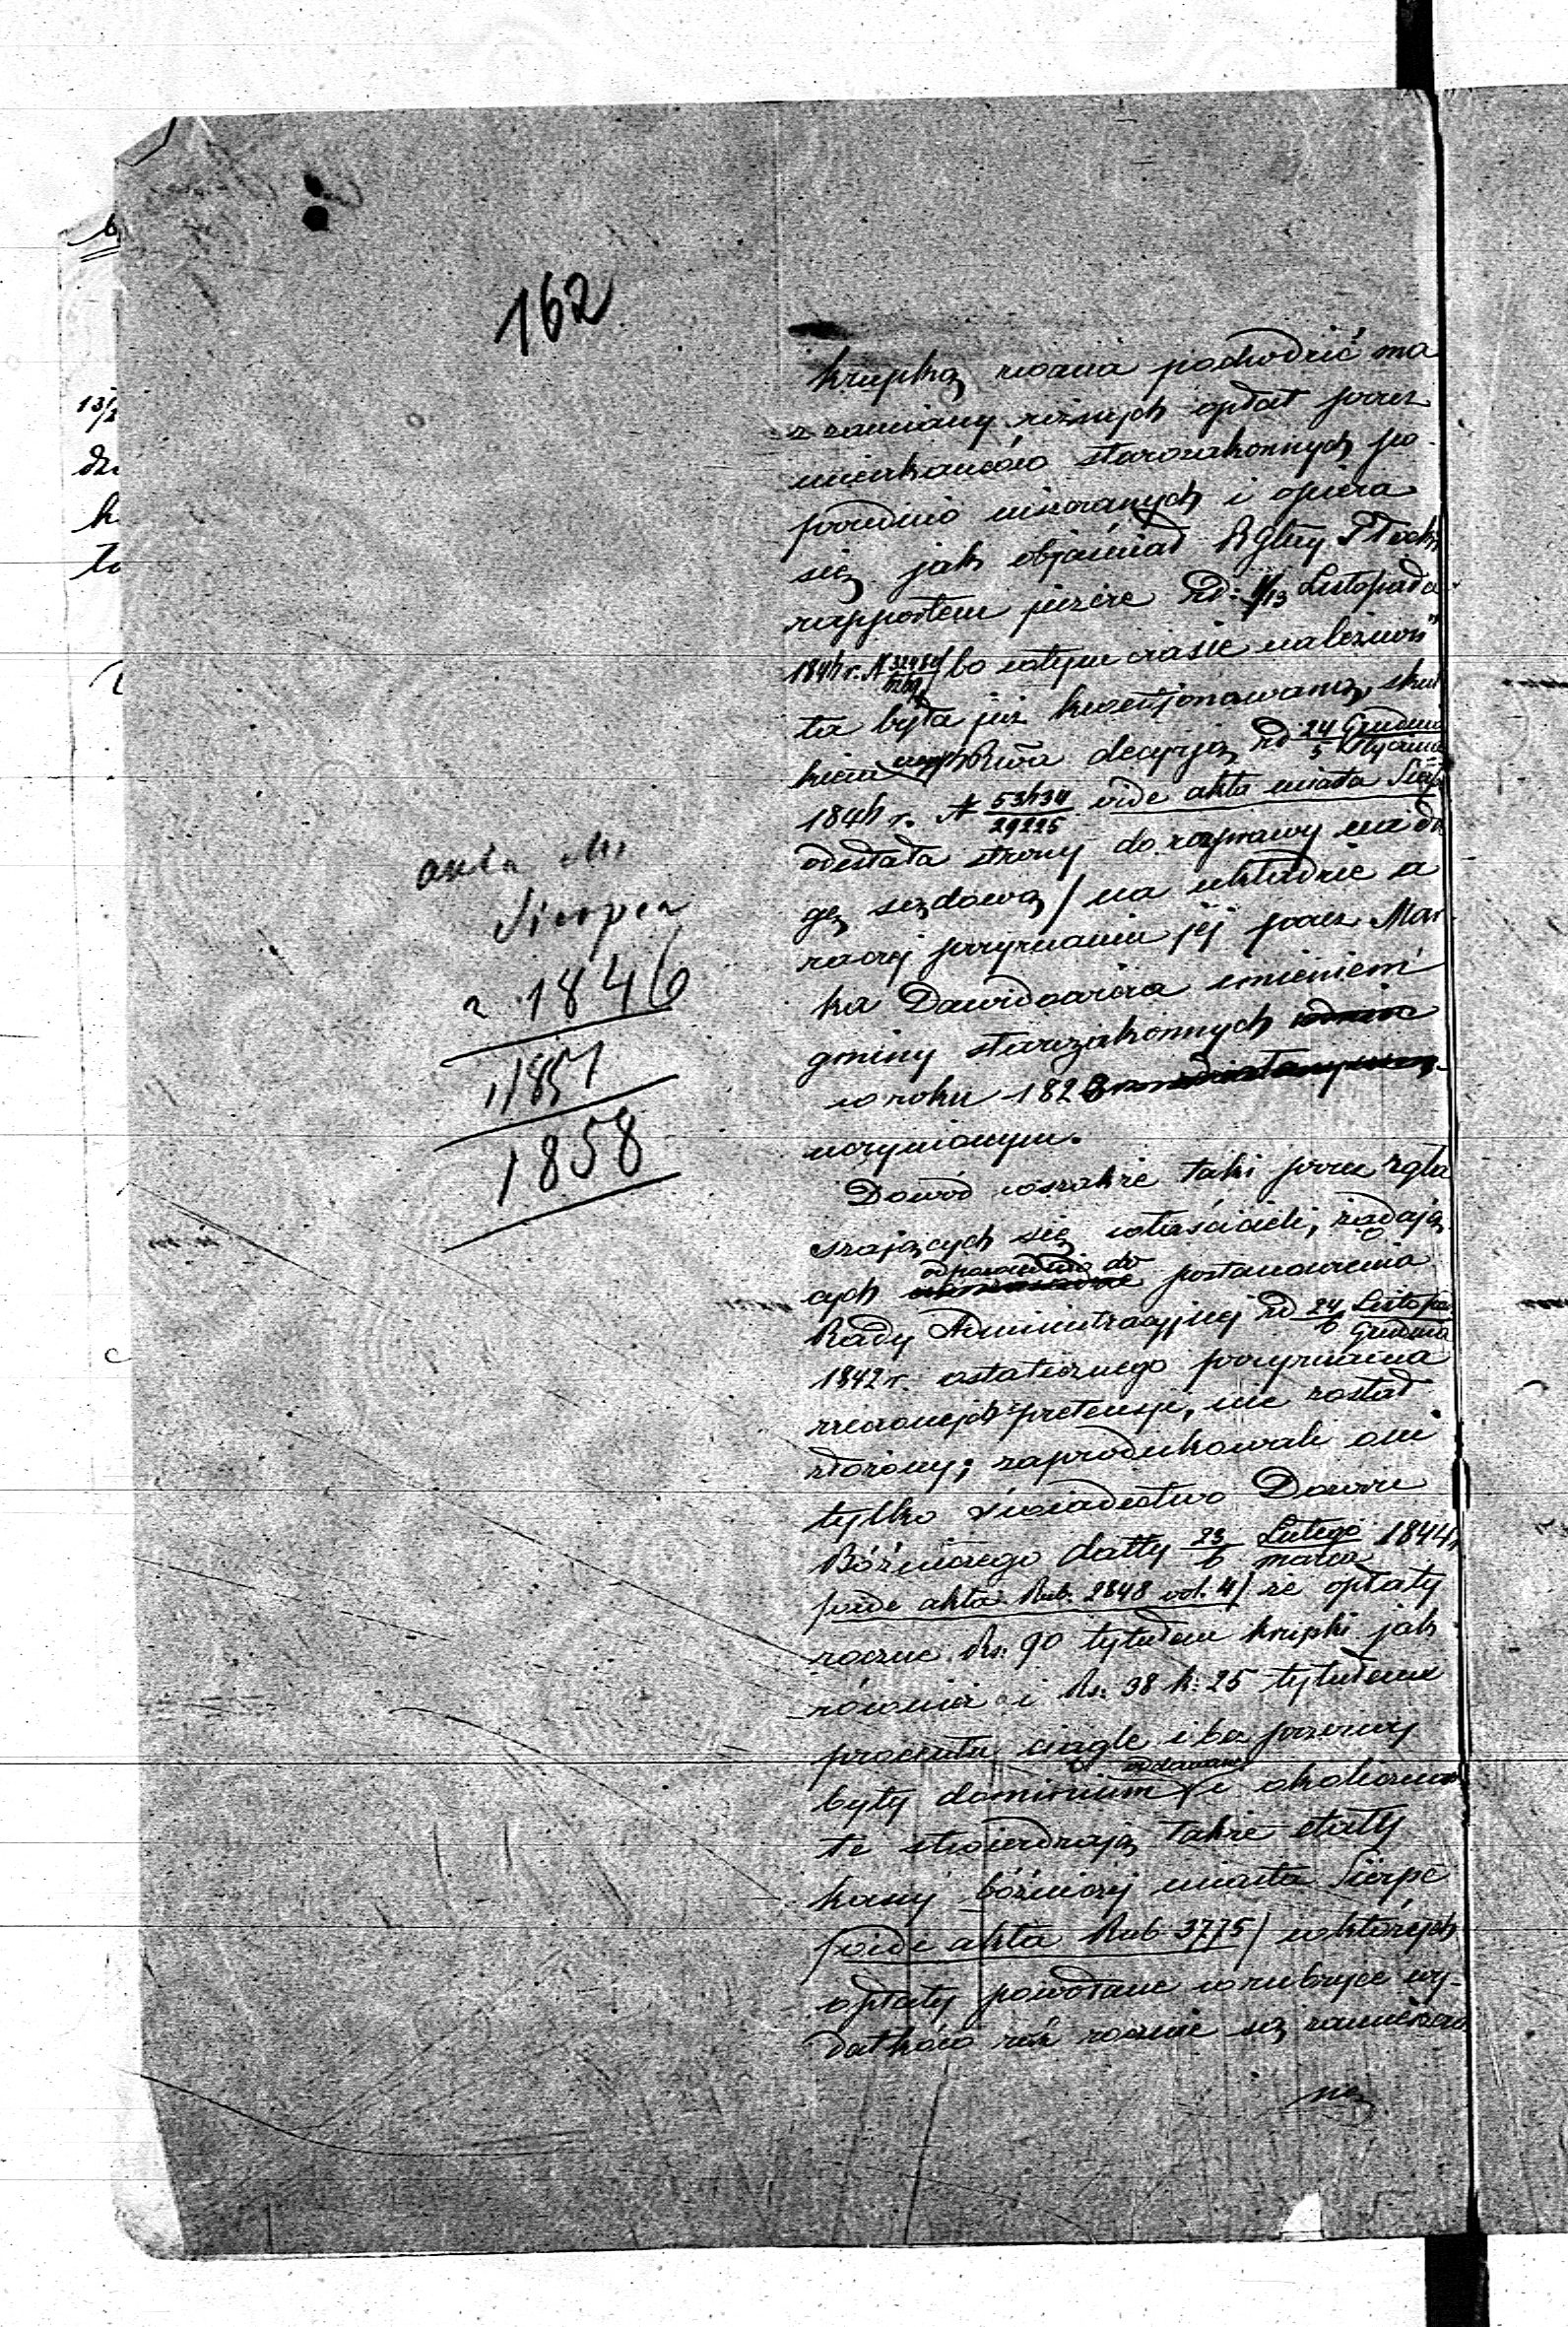 162
akta m.
Sierpca
z 1846
1851
1858
krupką zwana pochodzić ma
z zamiany różnych opłat przez
mieszkańców starozakonnych po-
przednio uiszczanych i opiera
się jak objaśniał R Glny Płocki
rapportem jeszcze zd: 1/13 Listopada
184 r. N bo w tym czasie należność
ta była już kwestjonowaną, sku
kiem decyzją zd 24 Grudnia / 5 Stycznia
184 r. N 53434/29225 vide akta miasta Sierp
odesłała strony do rozprawy na dro
gę sądową / na układzie a
raczej przyznaniu jej przez Mar
ka Dawidowicza imieniem
gminy starozakonnych
w roku 1823
uczynionym.
Dowód wszakże taki przez zgła
szających się właścicieli, żądają
cych odpowiednio do postanowienia
Rady Administracyjnej zd 24 Listopa / 6 Grudnia
1842 r. ostatecznego przyznania
rzeczonych pretensji, nie został
złożony; zaprodukowali oni
tylko świadectwo Dozoru
Bóżniczego datty 23 Lutego / 6 marca 1844 r
/vide akta Rub. 2848 vol. 4/ że opłaty
roczne Rs: 90 tytułem krupki jak
również i Rs: 38 k: 25 tytułem
procentu ciągle i bez przerwy
były dominium oddawane i okoliczność
tę stwierdzają także etaty
kassy bóżniczej miasta Sierpc
/vide akta Rub 3775/ w których
opłaty powołane w rubryce wy-
datków rok rocznie są zamieszczo
ne